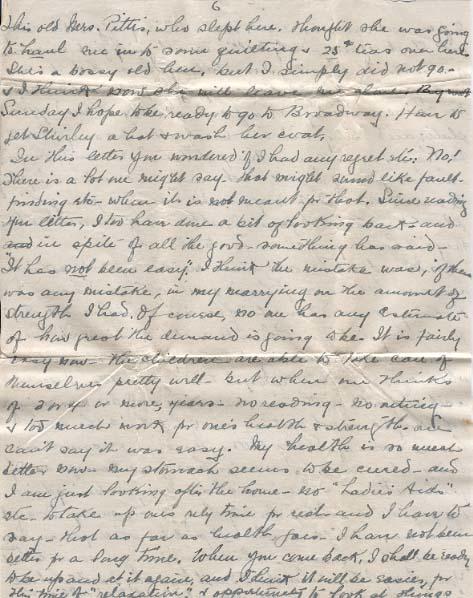 6
this old Mrs. Pittis, who slept here, thought she was going
to haul me in to some quilting & 25¢ teas over here
She's a bossy old hen, but I simply did not go -
& I think now she will leave me alone. By next
Sunday I hope to be ready to go to Broadway. Have to
get Shirley a hat & wash her coat.
In this letter you wondered if I had any regret etc. No!
There is a lot one might say that might sound like fault-
finding etc - when it is not meant for that. Since reading
your letter, I too have done a bit of looking back - and
and in spite of all the good - something has said -
"It has not been easy". I think the mistake was, if there
was any mistake, in my marrying on the amount of
strength I had. Of course, no one has any estimate
of how great the demand is going to be. It is fairly
easy now - the children are able to take care of
themselves pretty well - but when one thinks
of or more, years - no reading - no outing -
& too much work for one's health & strength one
can't say it was easy. My health is so much
better now - my stomach seems to be cured - and
I am just looking after the home - no "Ladies Aids"
etc. to take up one's time for rest - and I have to
say - that as far as health goes - I have not been
better for a long time. When you come back, I shall be ready
to be up and at it again, and I think it will be easier, for
this time of "relaxation" & opportunity to look at things